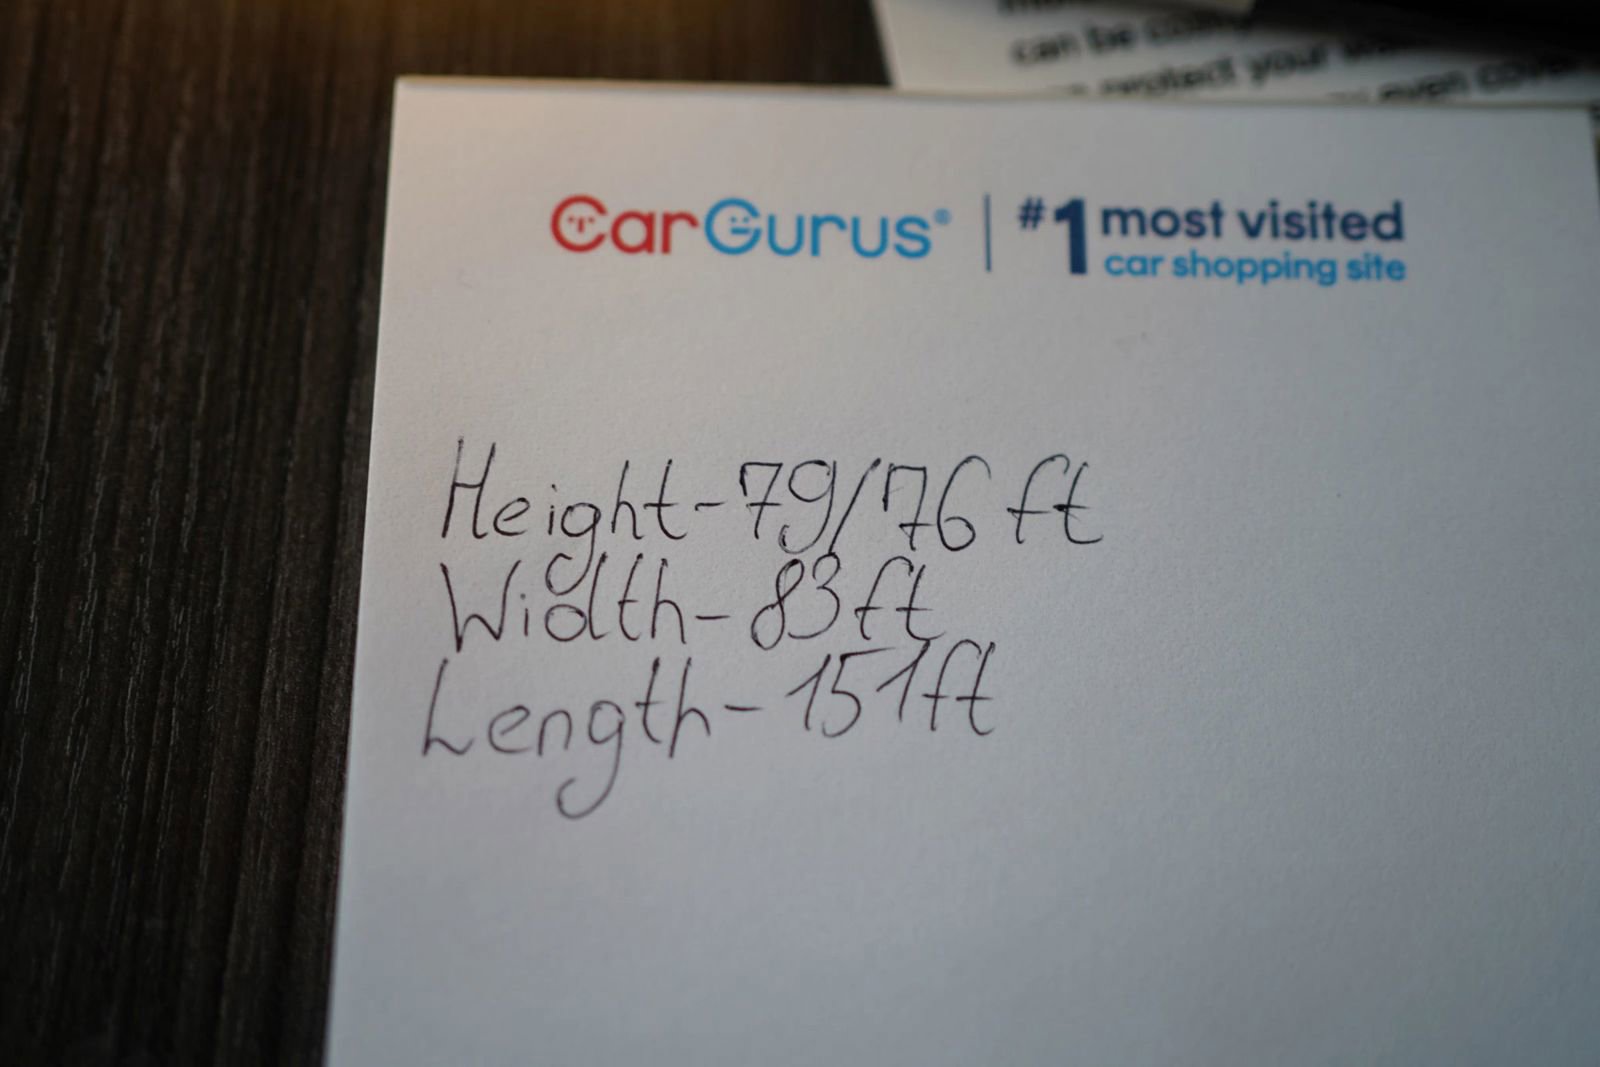 can be
protect your
even cove
CarGurus® | #1 most visited
car shopping site
Height-79/76 ft
Width-83ft
Length-151ft